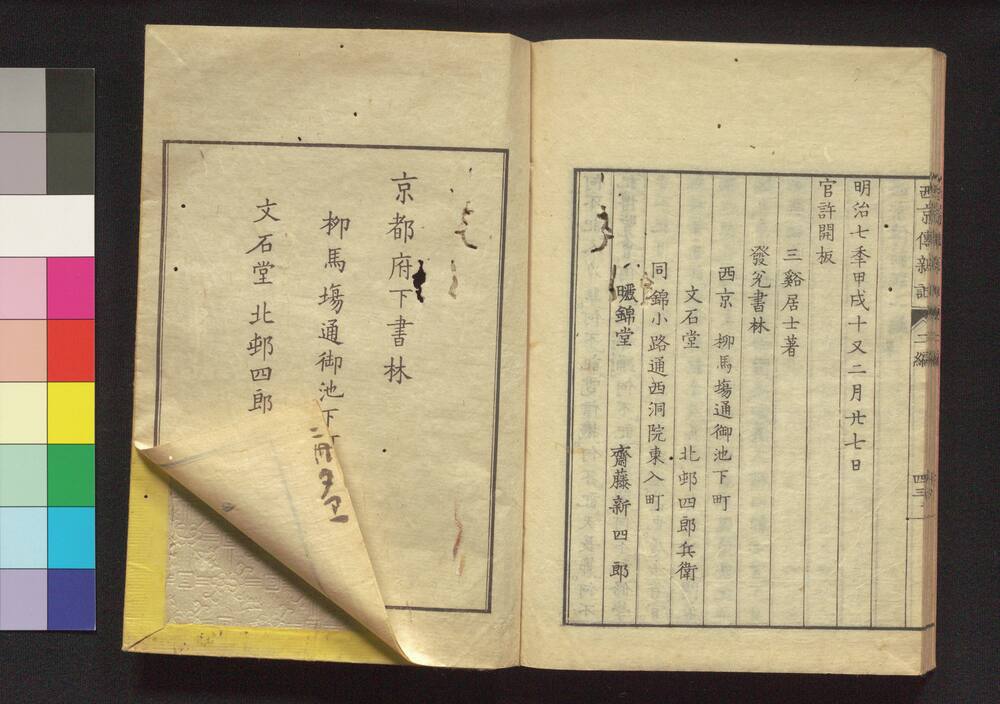 西京傳新記 二編
四三
明治七季甲戌十又二月廿七日
官許開板
三谿居士著
發兌書林
西京 柳馬塲通御池下町
文石堂 北邨四郎兵衛
同錦小路通西洞院東入町
暖錦堂 齋藤新四郎
京都府下書林
柳馬塲通御池下
文石堂 北邨四郎